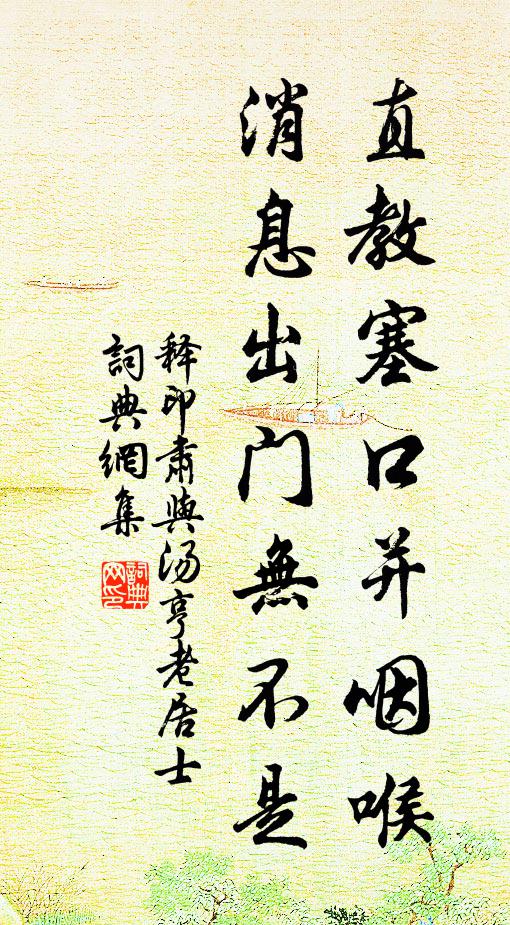 直教塞口并咽喉
消息出门無不是
释印肅與汤亨老居士
詞典網集
詞典网印